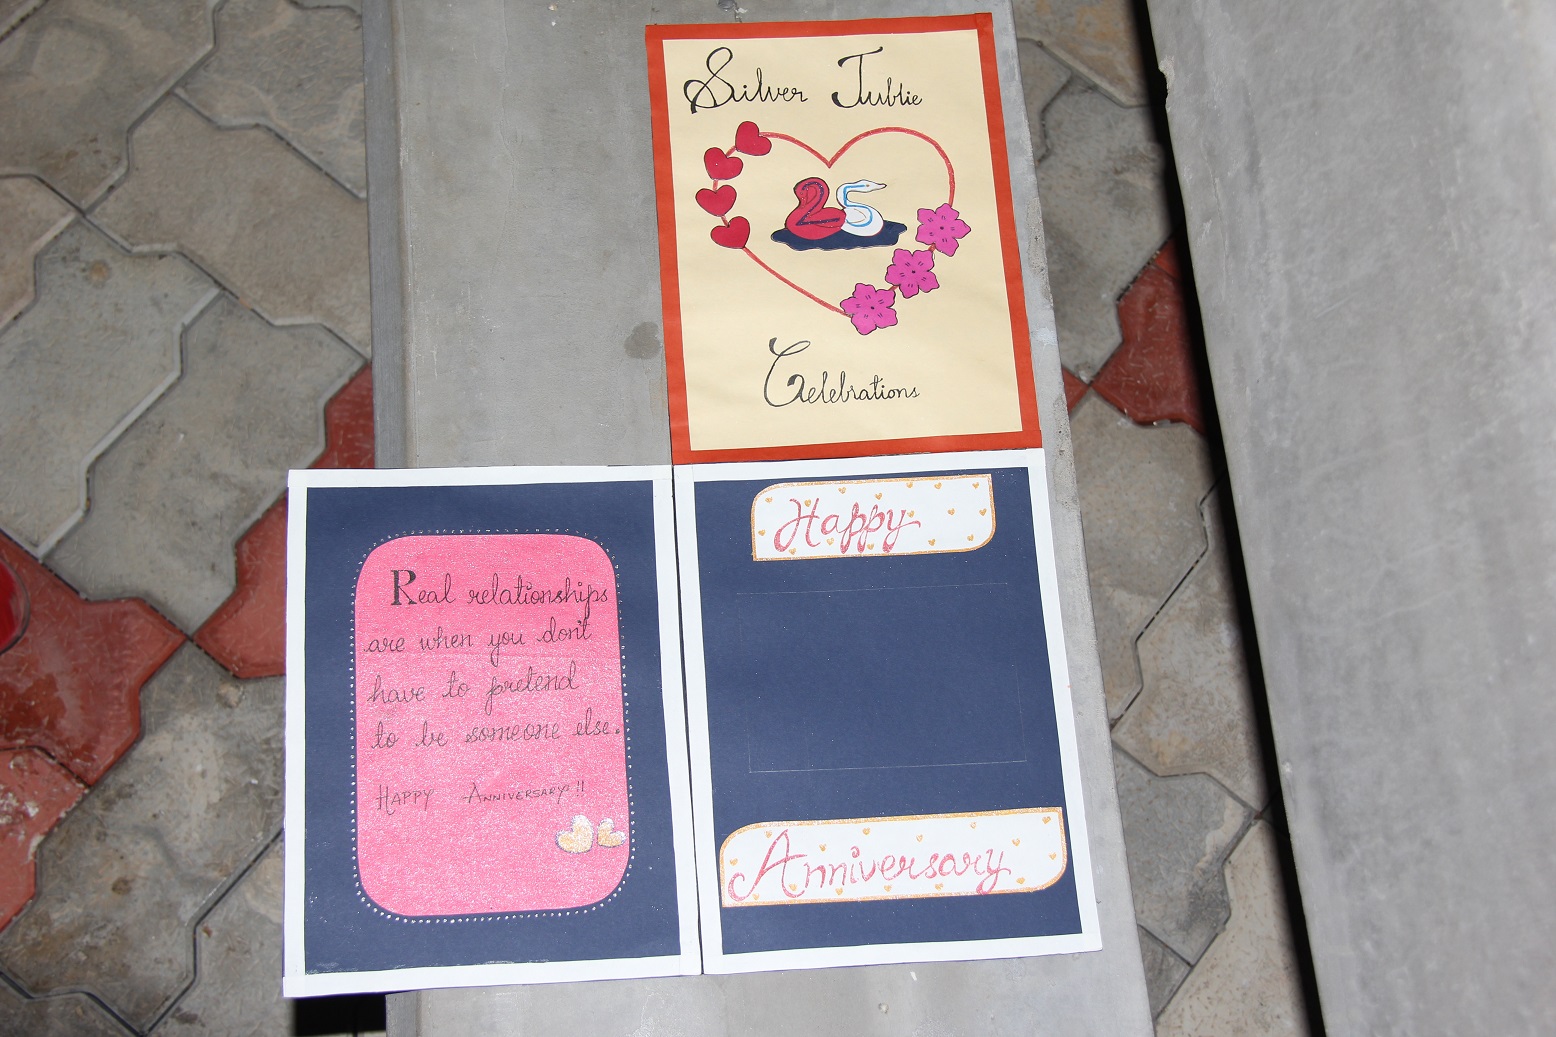 Silver Jublie
25
Celebrations
Real relationships
are when you don't
have to pretend
to be someone else.
HAPPY ANNIVERSARY!!
Happy
Anniversary